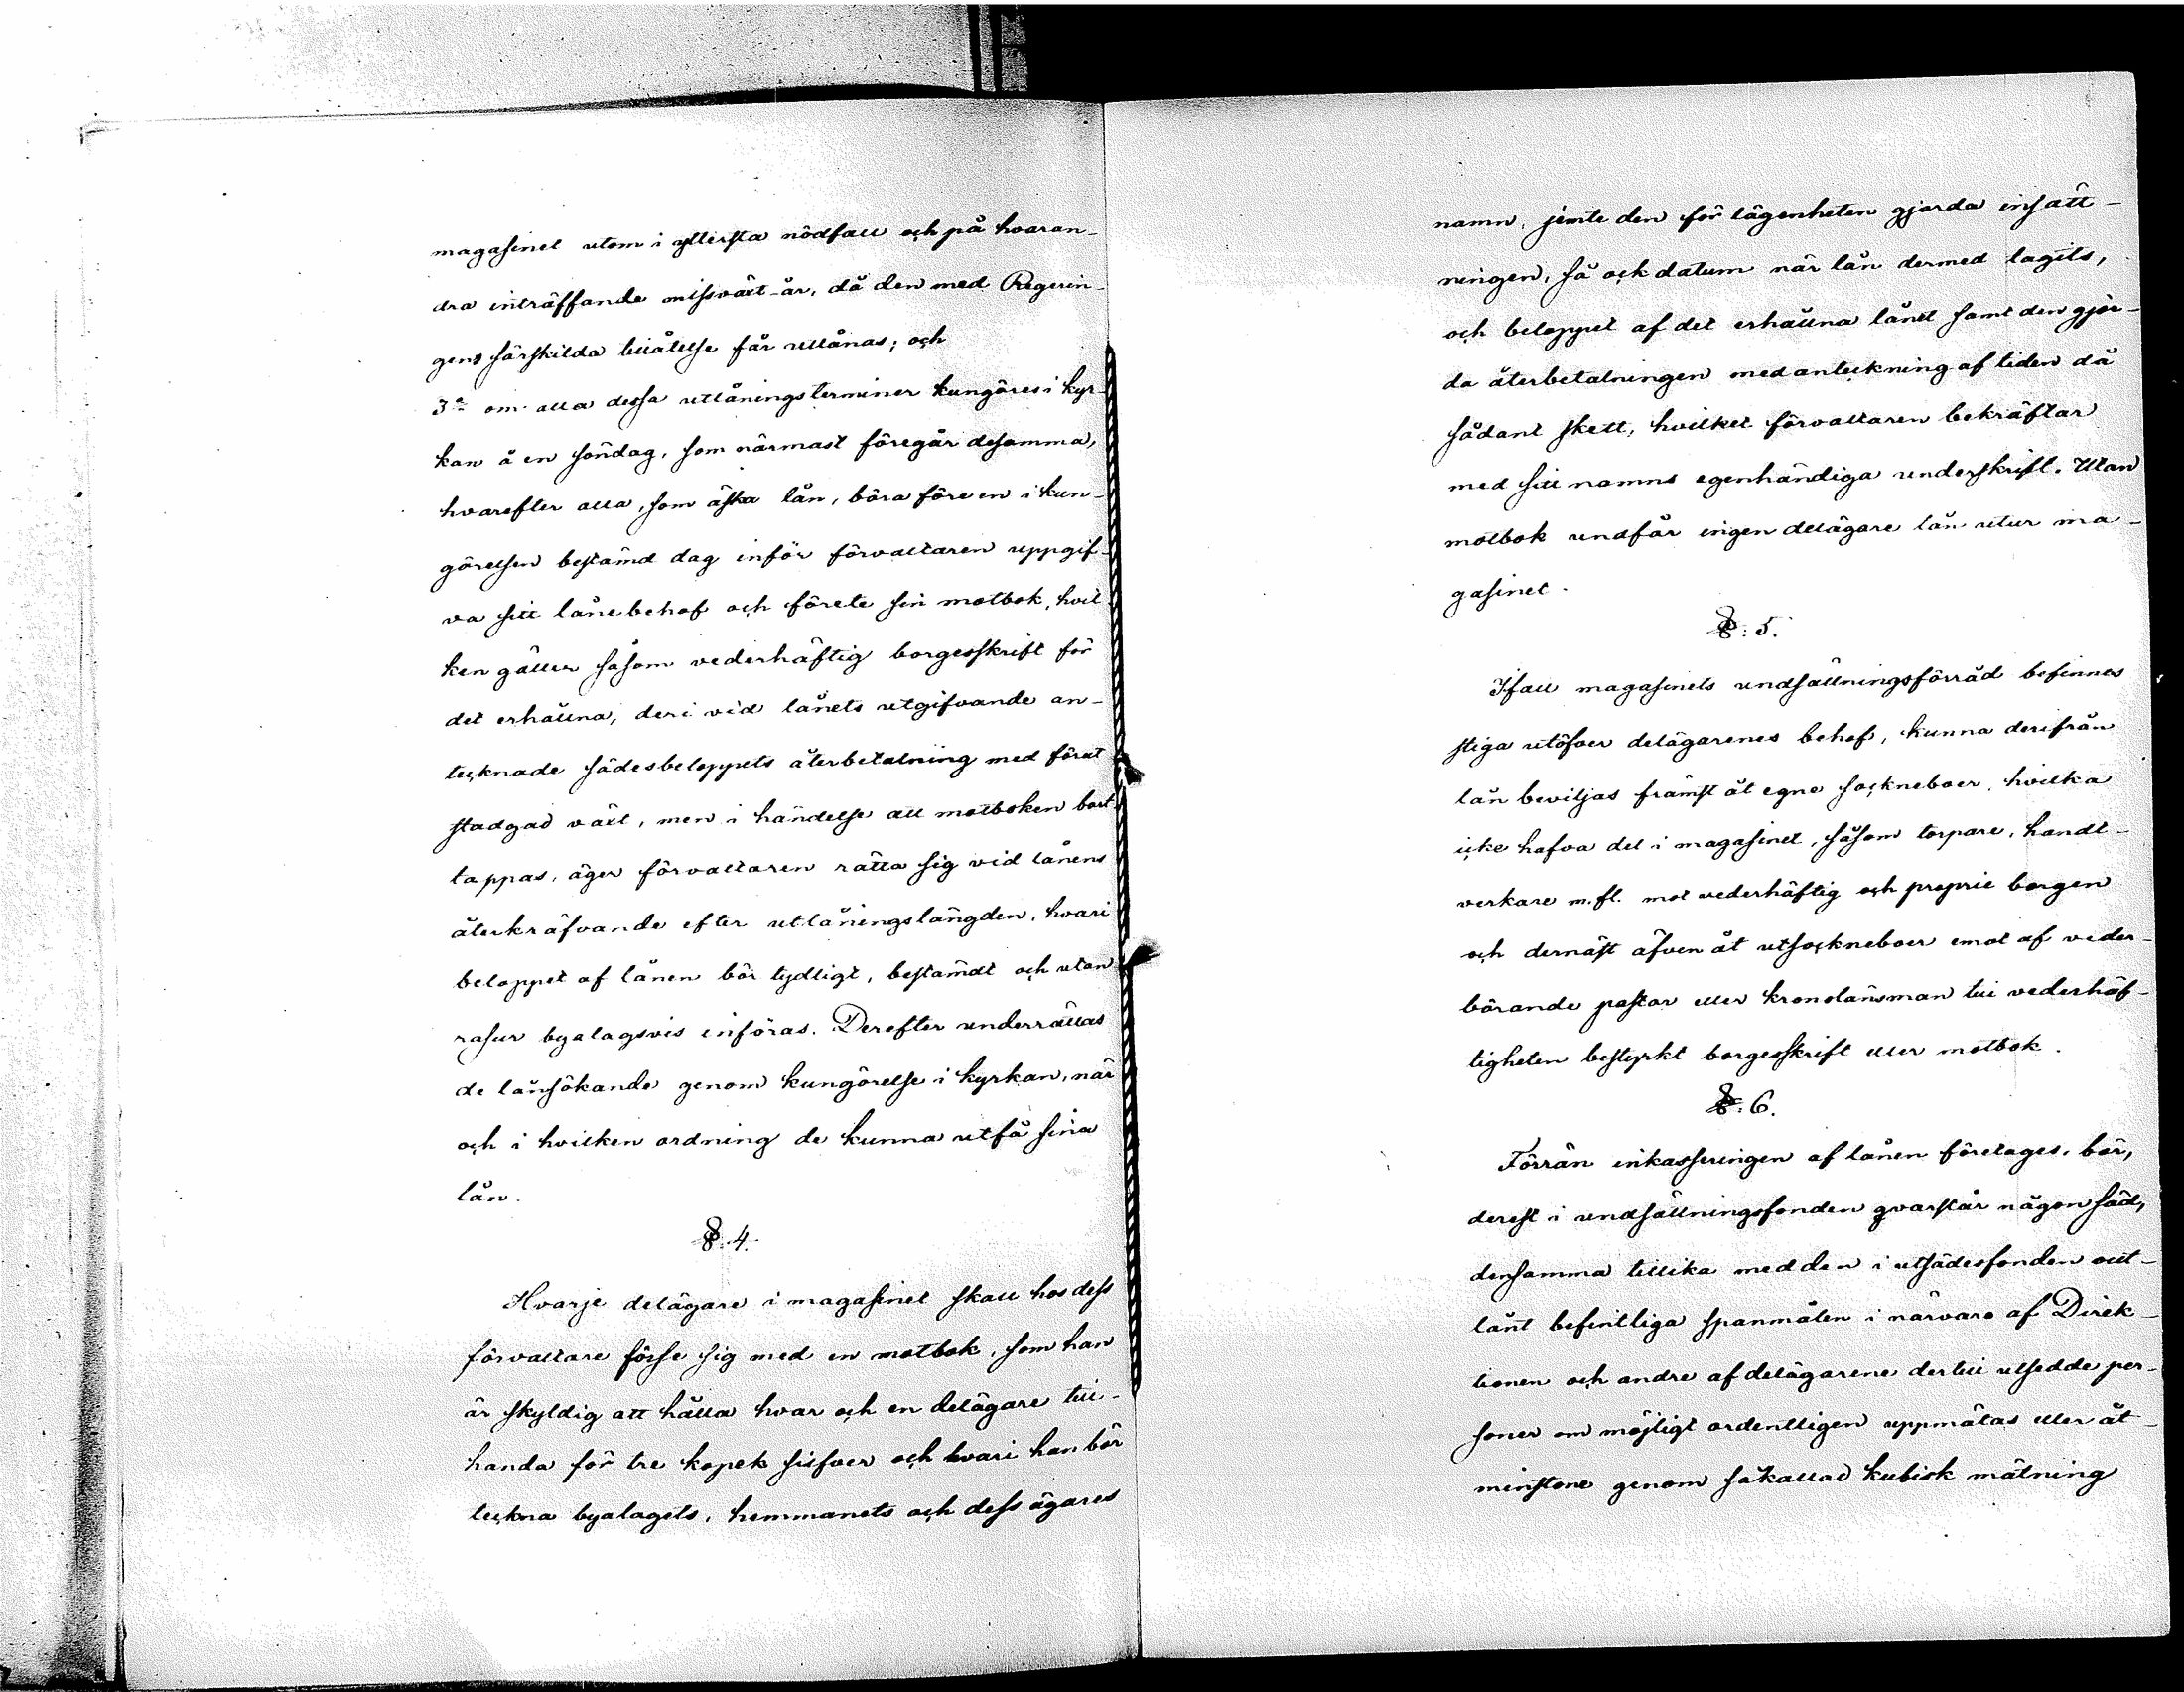 magasinet utom i yttersta nödfall och på hvaran-
dra inträffande missväxt-år, då den med Regerin-
gens särskilda tillåtelse får utlånas; och
3:o om alla dessa utlåningsterminer kungöres i kyr-
kan å en söndag, som närmast föregår desamma,
hvarefter alla, som äska lån, böra före en i kun-
görelsen bestämd dag inför förvaltaren uppgif-
va sitt lånebehof och förete sin motbok, hvil
ken gäller såsom vederhäftig borgesskrift för
det erhållna, deri vid lånets utgifvande an-
tecknade sädesbeloppets återbetalning med förut
stadgad växt, men i händelse att motboken bort
tappas, äger förvaltaren rätta sig vid lånens
återkräfvande efter utlåningslängden, hvari
beloppet af lånen bör tydligt, bestämdt och utan
rasur byalagsvis införas. Derefter underrättas
de lånsökande genom kungörelse i kyrkan, när
och i hvilken ordning de kunna utfå sina
lån.
§: 4.
Hvarje delägare i magasinet skall hos dess
förvaltare förse sig med en motbok, som han
är skyldig att hålla hvar och en delägare till-
handa för tre kopek silfver och hvari han bör
teckna byalagets, hemmanets och dess ägares
namn, jemte den för lägenheten gjorda insätt-
ningen, så ock datum när lån dermed tagits,
och beloppet af det erhållna lånet samt den gjor-
da återbetalningen med anteckning af tiden då
sådant skett, hvilket förvaltaren bekräftar
med sitt namns egenhändiga underskrift. Utan
motbok undfår ingen delägare lån utur ma-
gasinet.
§: 5.
Ifall magasinets undsättningsförråd befinnes
stiga utöfver delägarenes behof, kunna derifrån
lån beviljas främst åt egne sockneboer, hvilka
icke hafva del i magasinet, såsom torpare, handt-
verkare m.fl. mot vederhäftig och proprie borgen
och dernäst äfven åt utsockneboer emot af veder-
börande pastor eller kronolänsman till vederhäf-
tigheten bestyrkt borgesskrift eller motbok.
§: 6.
Förrän inkasseringen af lånen företages, bör,
derest i undsättningsfonden qvarstår någon säd,
densamma tillika med den i utsädesfonden out-
lånt befintliga spanmålen i närvaro af Direk-
tionen och andre af delägarene dertill utsedde per-
soner om möjligt ordentligen uppmätas eller åt-
minstone genom såkallad kubisk mätning